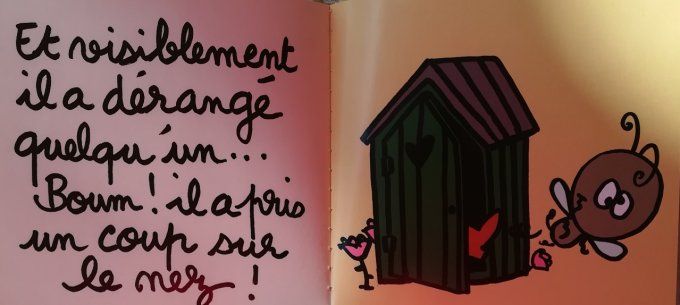 Et visiblement
il a dérangé
quelqu'un...
Boum! il a pris
un coup sur
le nez !